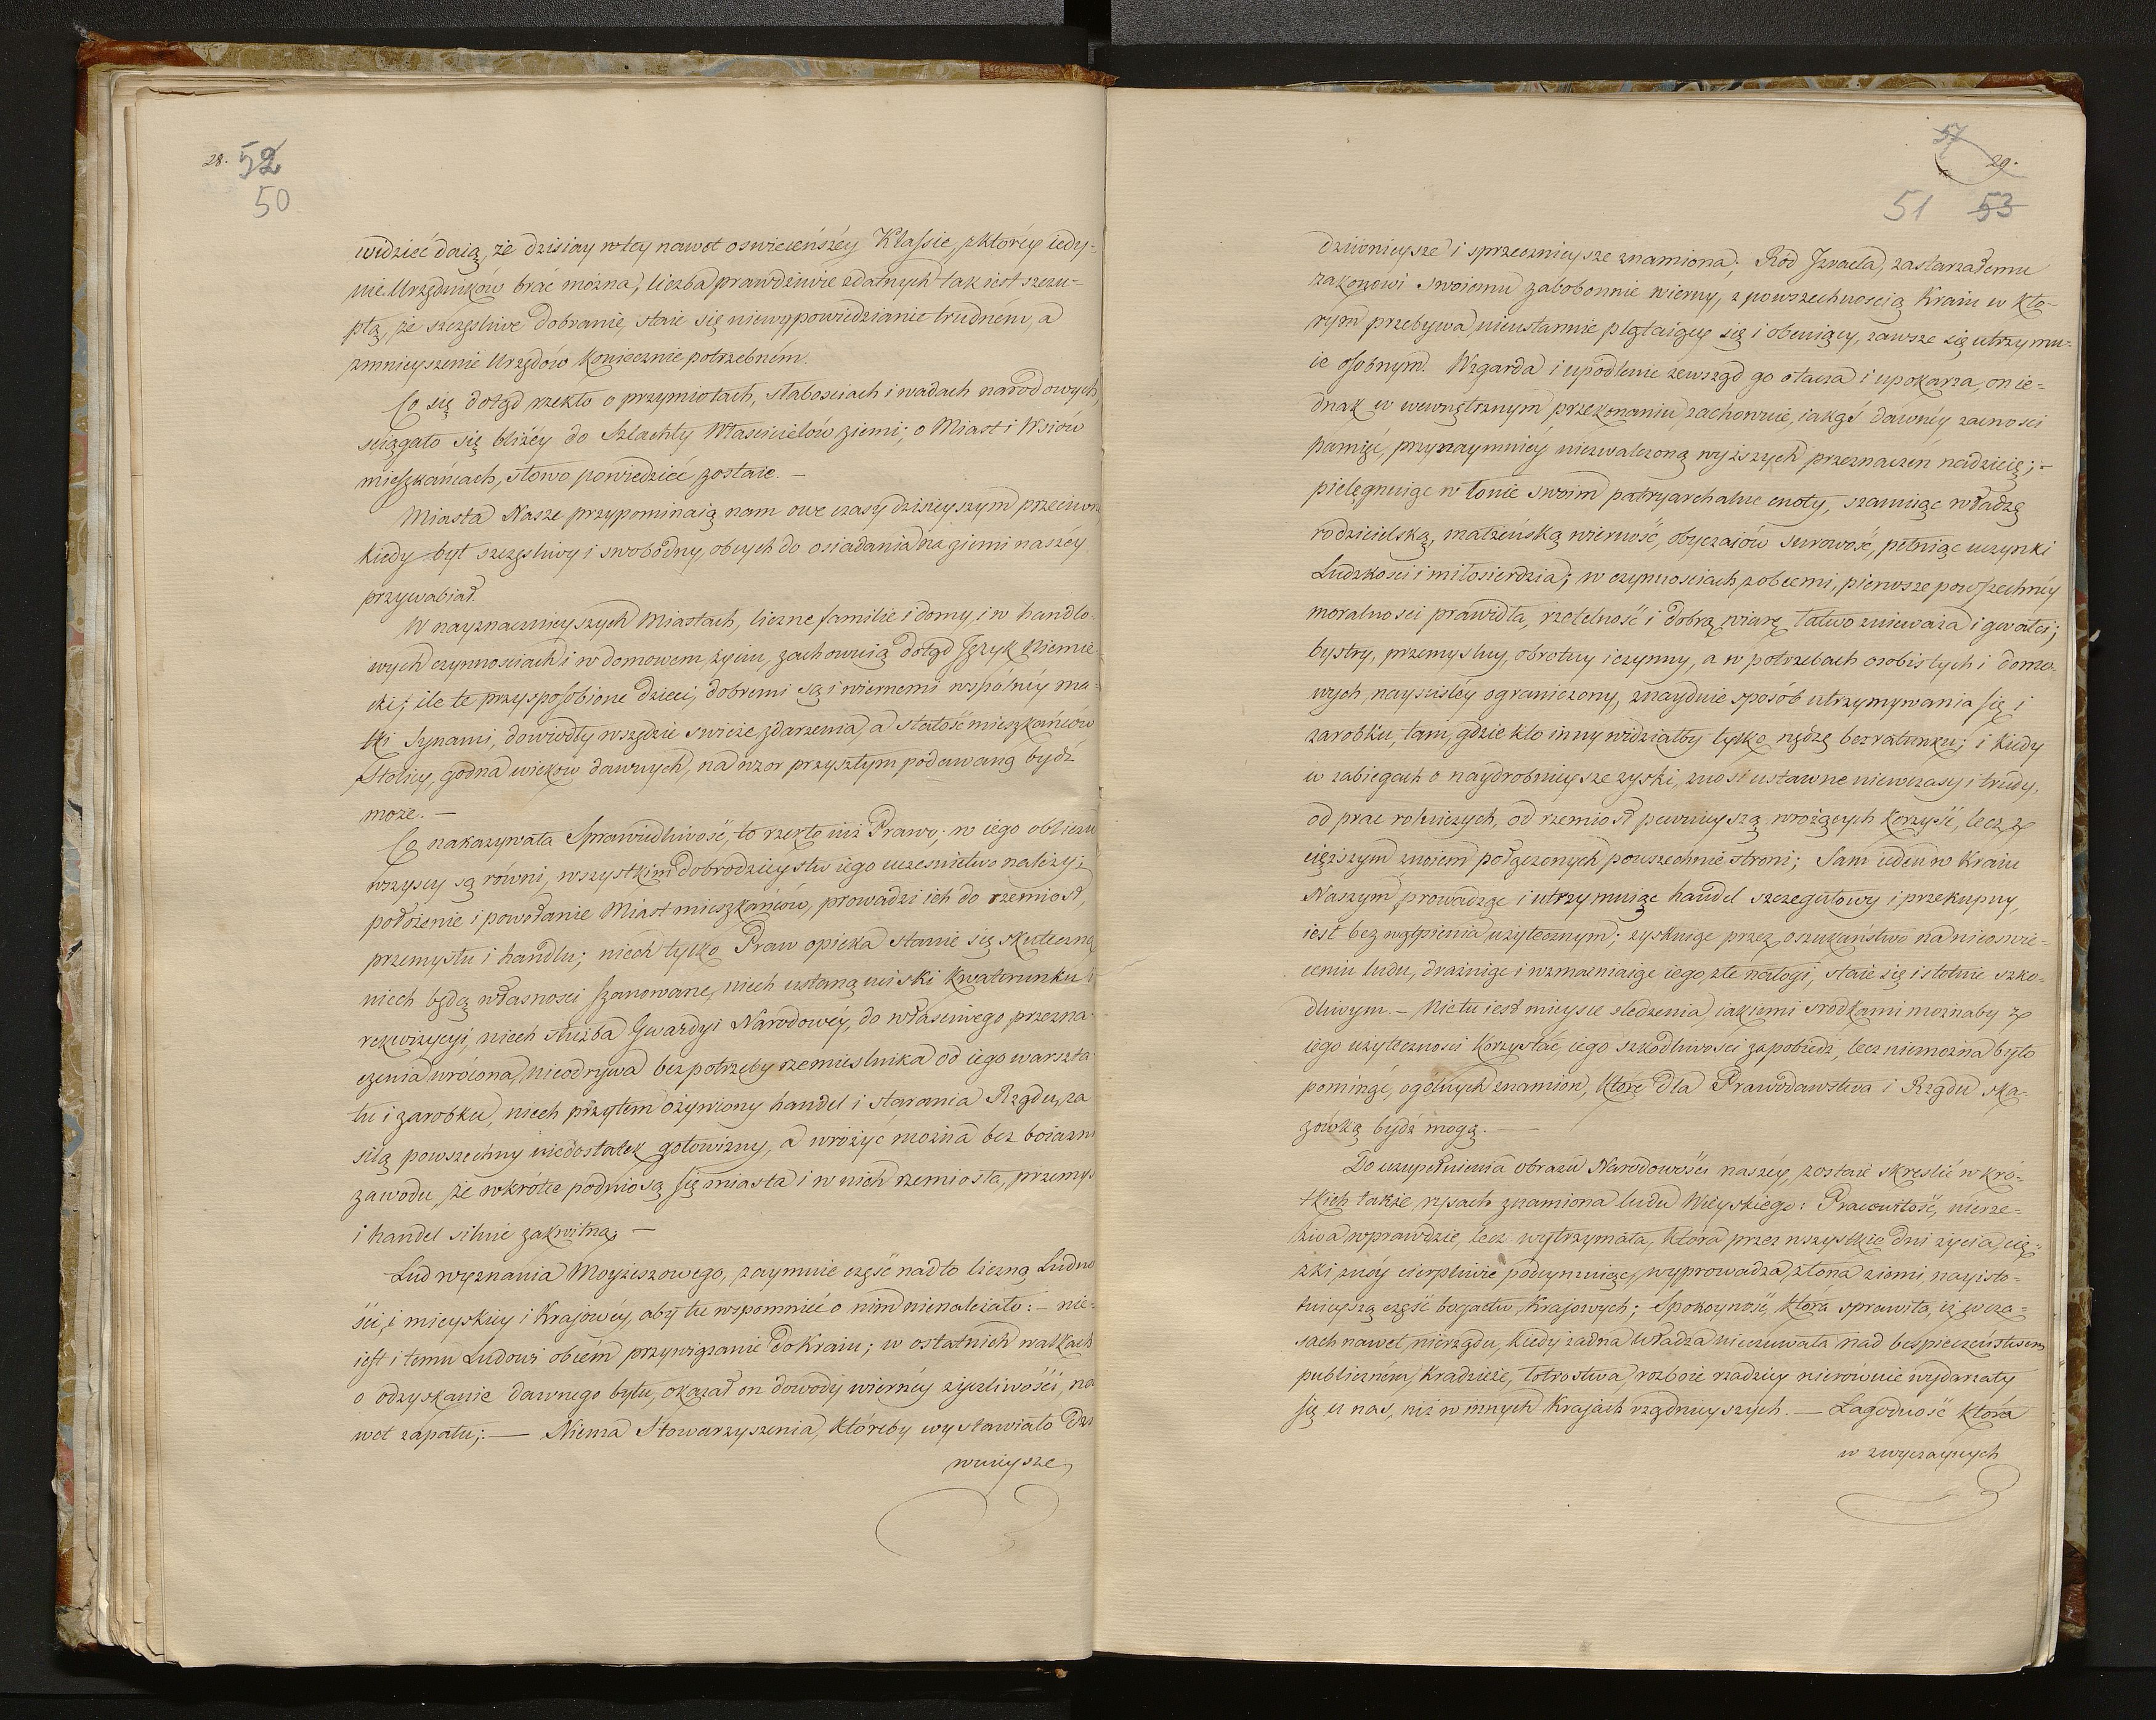 28. 52
50
widzieć daią, że dzisiay w tey nawet oswieceńszéy Klassie, z którey iedy-
nie Urzędników brać można, liczba prawdziwie zdatnych tak iest szczu-
płą, że szczęsliwe dobranie, staie się niewypowiedzianie trudném, a
zmnieyszenie Urzędów koniecznie potrzebném.
Co się dotąd rzekło o przymiotach, słabosciach i wadach narodowych,
sciągało się bliżéy do Szlachty Właścicielów ziemi; o Miast i Wsiów
mieszkańcach, słowo powiedzieć zostaie. —
Miasta Nasze przypominaią nam owe czasy dzisieyszym przeciwne
kiedy był szczęsliwy i swobodny, obcych do osiadania na ziemi naszéy
przywabiał.
W nayznacznieyszych Miastach, liczne familie i domy, i w handlo-
wych czynnosciach i w domowem życiu, zachowuią dotąd Język Niemie-
cki; ile te przysposobione dzieci, dobremi są i wiernemi wspólnéy ma-
tki Synami, dowiodły wszędzie swieże zdarzenia, a stałość mieszkańców
Stolicy, godna wieków dawnych, na wzor przyszłym podawaną bydź
może. —
Co nakazywała Sprawiedliwość, to rzekło iuż Prawo; w iego obliczu
wszyscy są równi, wszystkim dobrodzieystw iego uczesnictwo należy;
położenie i powołanie Miast mieszkańców, prowadzi ich do rzemiosł,
przemysłu i handlu; niech tylko Praw opieka stanie się skuteczną
niech będą własnosci szanowane, niech ustaną uciski kwaterunku i
rekwizycyi, niech służba Gwardyi Narodowéy, do własciwego przezna-
czenia wrócona, nieodrywa bez potrzeby rzemieslnika od iego warszta-
tu i zarobku, niech przytem ożywiony handel i starania Rządu, za
silą powszechny niedostatek gotowizny, a wróżyc można bez boiazni
zawodu, że wkrótce podniosą się miasta i w nich rzemiosła, przemys
i handel silnie zakwitną. —
Lud wyznania Moyżeszowego, zaymuie część nadto liczną Ludno
ści, i mieyskiey i Krajowéy, aby tu wspomnieć o nim nienależało: — nie-
jest i temu Ludowi obcém przywiązanie do Kraiu; w ostatnich walkach
o odzyskanie dawnego bytu, okazał on dowody wiernéy życzliwości, na
wet zapału; — Niema Stowarzyszenia, któreby wystawiało dzi
wnieysze
57 29.
51 53
dziwnieysze i sprzecznieysze znamiona; Ród Izraela, zastarzałemu
zakonowi swoiemu zabobonnie wierny, z powszechnoscią Kraiu w któ-
rym przebywa, nieustannie plątaiący się i obcuiący, zawsze się utrzymu-
ie osobnym. Wzgarda i upodlenie zewsząd go otacza i upokarza, on ie-
dnak w wewnętrznym przekonaniu, zachowuie, iakąś dawnéy zacnosci
pamięć, przynaymniey niezwalczoną wyższych przeznaczeń nadzieię; —
pielęgnuiąc w łonie swoim patryarchalne cnoty, szanuiąc władzę
rodzicielską, małżeńską wierność, obyczaiów surowość, pełniąc uczynki
Ludzkosci i miłosierdzia; w czynnosciach z obcemi, pierwsze powszechnéy
moralnosci prawidła, rzetelność i dobrą wiarę łatwo znieważa i gwałci;
bystry, przemyslny, obrotny i czynny, a w potrzebach osobistych i domo-
wych, nayscisléy ograniczony, znayduie sposób utrzymywania się i
zarobku, tam, gdzie kto inny widziałby tylko nędzę bez ratunku; i kiedy
w zabiegach o naydrobnieysze zyski, znosi ustawne niewczasy i trudy,
od prac rolniczych, od rzemiosł pewnieyszą wrożących korzyść, lecz z
cięższym znoiem połączonych powszechnie stroni; Sam ieden w Kraiu
Naszym, prowadząc i utrzymuiąc handel szczegułowy i przekupny,
iest bez wątpienia użytecznym; zyskuiąc przez oszukaństwo na nieoswie-
ceniu ludu, drażniąc i wzmacniaiąc iego złe nałogi, staie się istotnie szko-
dliwym. — Nie tu iest mieysce sledzenia, iakiemi srodkami możnaby z
iego użytecznosci korzystać, iego szkodliwosci zapobiedz, lecz niemożna było
pominąć, ogólnych znamion, które dla Prawodawstwa i Rządu ska-
zówką bydź mogą. —
Do uzupełnienia obrazu Narodowości naszéy, zostaie skreslić w kró-
tkich także rysach znamiona ludu Wieyskiego: Pracowitość, nierze-
źwa wprawdzie, lecz wytrzymała, która przez wszystkie dni życia, cię-
żki znóy cierpliwie podeymuiąc, wyprowadza z łona ziemi, nayisto-
tnieyszą część bogactw Krajowych; Spokoyność, która sprawiła, iż w cza-
sach nawet nierządu, kiedy żadna Władza nieczuwała nad bespieczeństwem
publiczném, kradzieże, łotrostwa, rozboie rzadziey nierównie wydarzały
się u nas, niż w innych Krajach rządnieyszych. — Łagodność która
w zwyczaynych